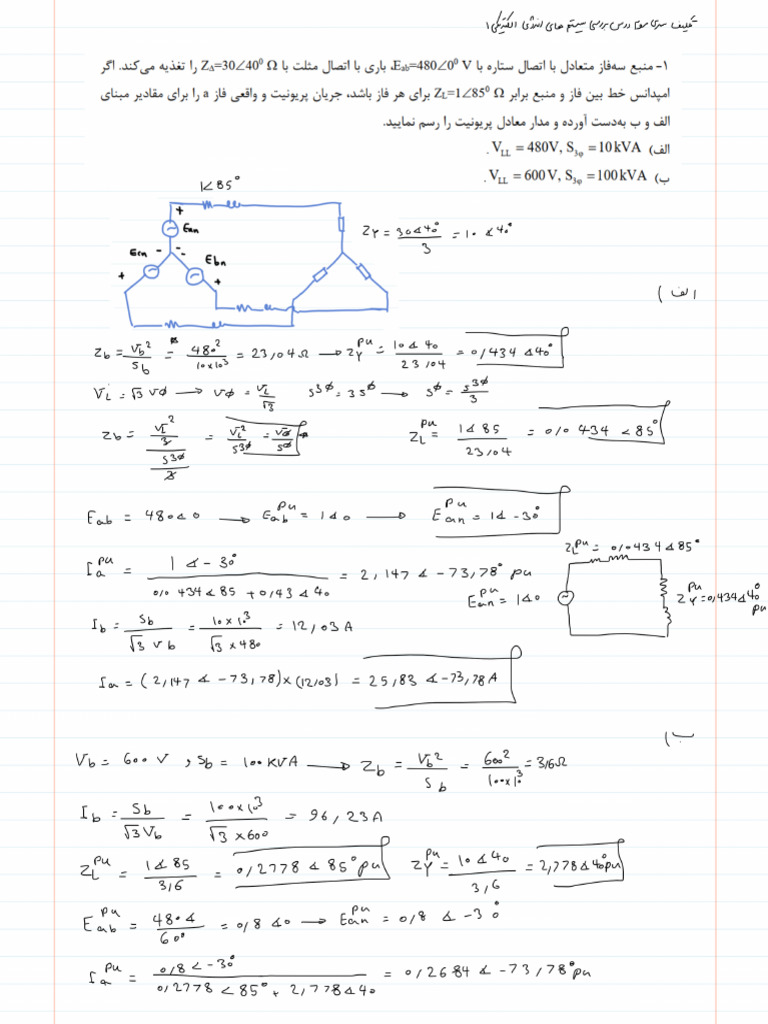 تکلیف سری سوم درس بررسی سیستم های انرژی الکتریکی ۱
۱- منبع سه‌فاز متعادل با اتصال ستاره با Eab=480∠0⁰ V، باری با اتصال مثلث با ZΔ=30∠40⁰ Ω را تغذیه می‌کند. اگر
امپدانس خط بین فاز و منبع برابر ZL=1∠85⁰ Ω برای هر فاز باشد، جریان پریونیت و واقعی فاز a را برای مقادیر مبنای
الف و ب به‌دست آورده و مدار معادل پریونیت را رسم نمایید.
الف) V_LL = 480V, S_3φ = 10 kVA .
ب) V_LL = 600 V, S_3φ = 100 kVA .
1∠85°
+ Ean
Ecn - - Ebn
+ +
Z_Y = 30∠40° / 3 = 10∠40°
الف)
Z_b = V_b² / S_b = 480² / 10×10³ = 23,04Ω → Z_Y^pu = 10∠40 / 23,04 = 0,434∠40°
V_L = √3 Vφ → Vφ = V_L / √3 S^3φ = 3S^φ → S^φ = S^3φ / 3
Z_b = (V_L² / 3) / (S^3φ / 3) = V_L² / S^3φ = Vφ / S^φ Z_L^pu = 1∠85 / 23,04 = 0,0434∠85°
E_ab = 480∠0 → E_ab^pu = 1∠0 → E_an^pu = 1∠-30°
Z_L^pu = 0,0434∠85°
I_a^pu = 1∠-30° / 0,0434∠85 + 0,43∠40 = 2,147∠-73,78° pu
E_an^pu = 1∠0
Z_Y^pu = 0,434∠40° pu
I_b = S_b / √3 V_b = 10×10³ / √3×480 = 12,03 A
I_a = (2,147∠-73,78)×(12,03) = 25,83∠-73,78 A
ب)
V_b = 600 V , S_b = 100 KVA → Z_b = V_b² / S_b = 600² / 100×10³ = 3,6Ω
I_b = S_b / √3 V_b = 100×10³ / √3×600 = 96,23 A
Z_L^pu = 1∠85 / 3,6 = 0,2778∠85° pu Z_Y^pu = 10∠40 / 3,6 = 2,778∠40° pu
E_ab^pu = 480∠ / 600 = 0,8∠0 → E_an^pu = 0,8∠-30°
I_a^pu = 0,8∠-30° / 0,2778∠85° + 2,778∠40 = 0,2684∠-73,78° pu